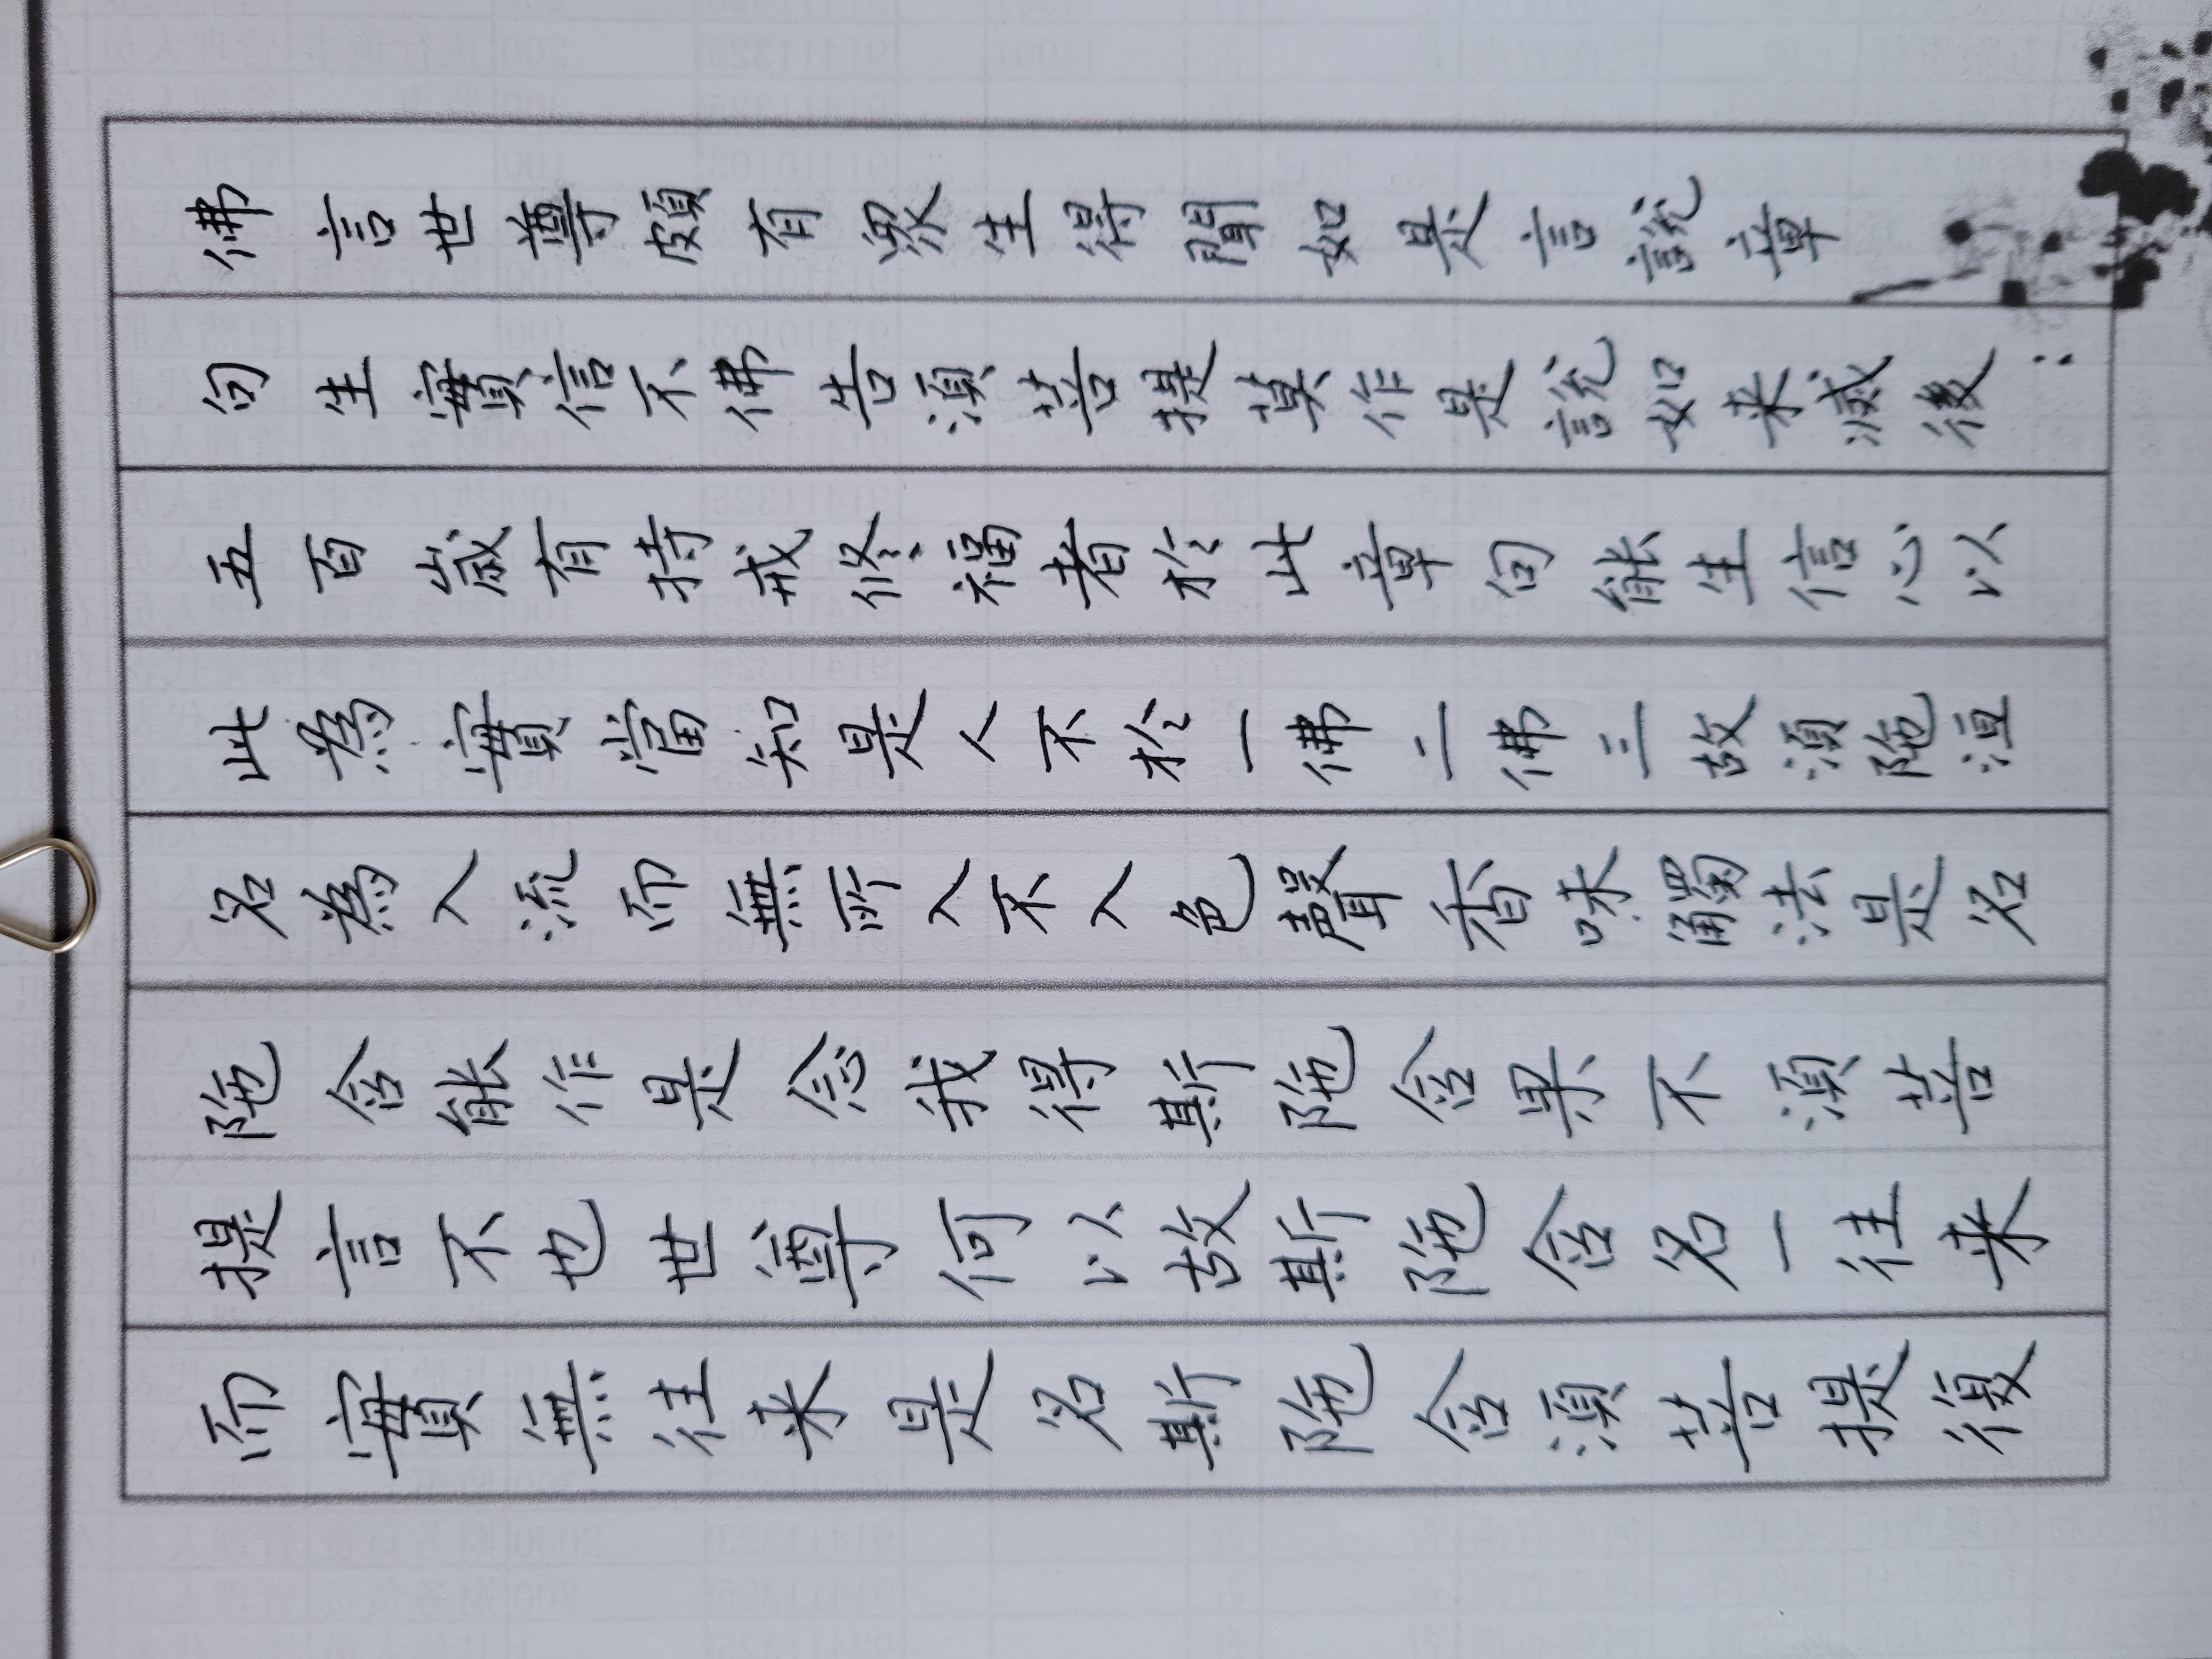 佛言世尊頗有眾生得聞如是言說章
句生實信不佛告須菩提莫作是說如来滅後:
五百歲有持戒修福者於此章句能生信心以
此為實當知是人不於一佛二佛三故須陁洹
名為入流而無所入不入色聲香味觸法是名
陁含能作是念我得斯陁含果不須菩
提言不也世尊何以故斯陁含名一往来
而實無往来是名斯陁含須菩提復